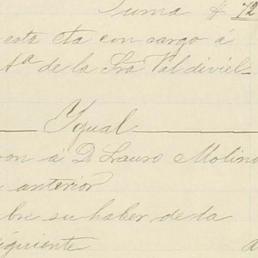 Suma $ 72
esta cta con cargo á
ta de la Sra Valdiviel-
Ygual
on á D. Lauro Molino
anterior
bre su haber de la
siguiente a